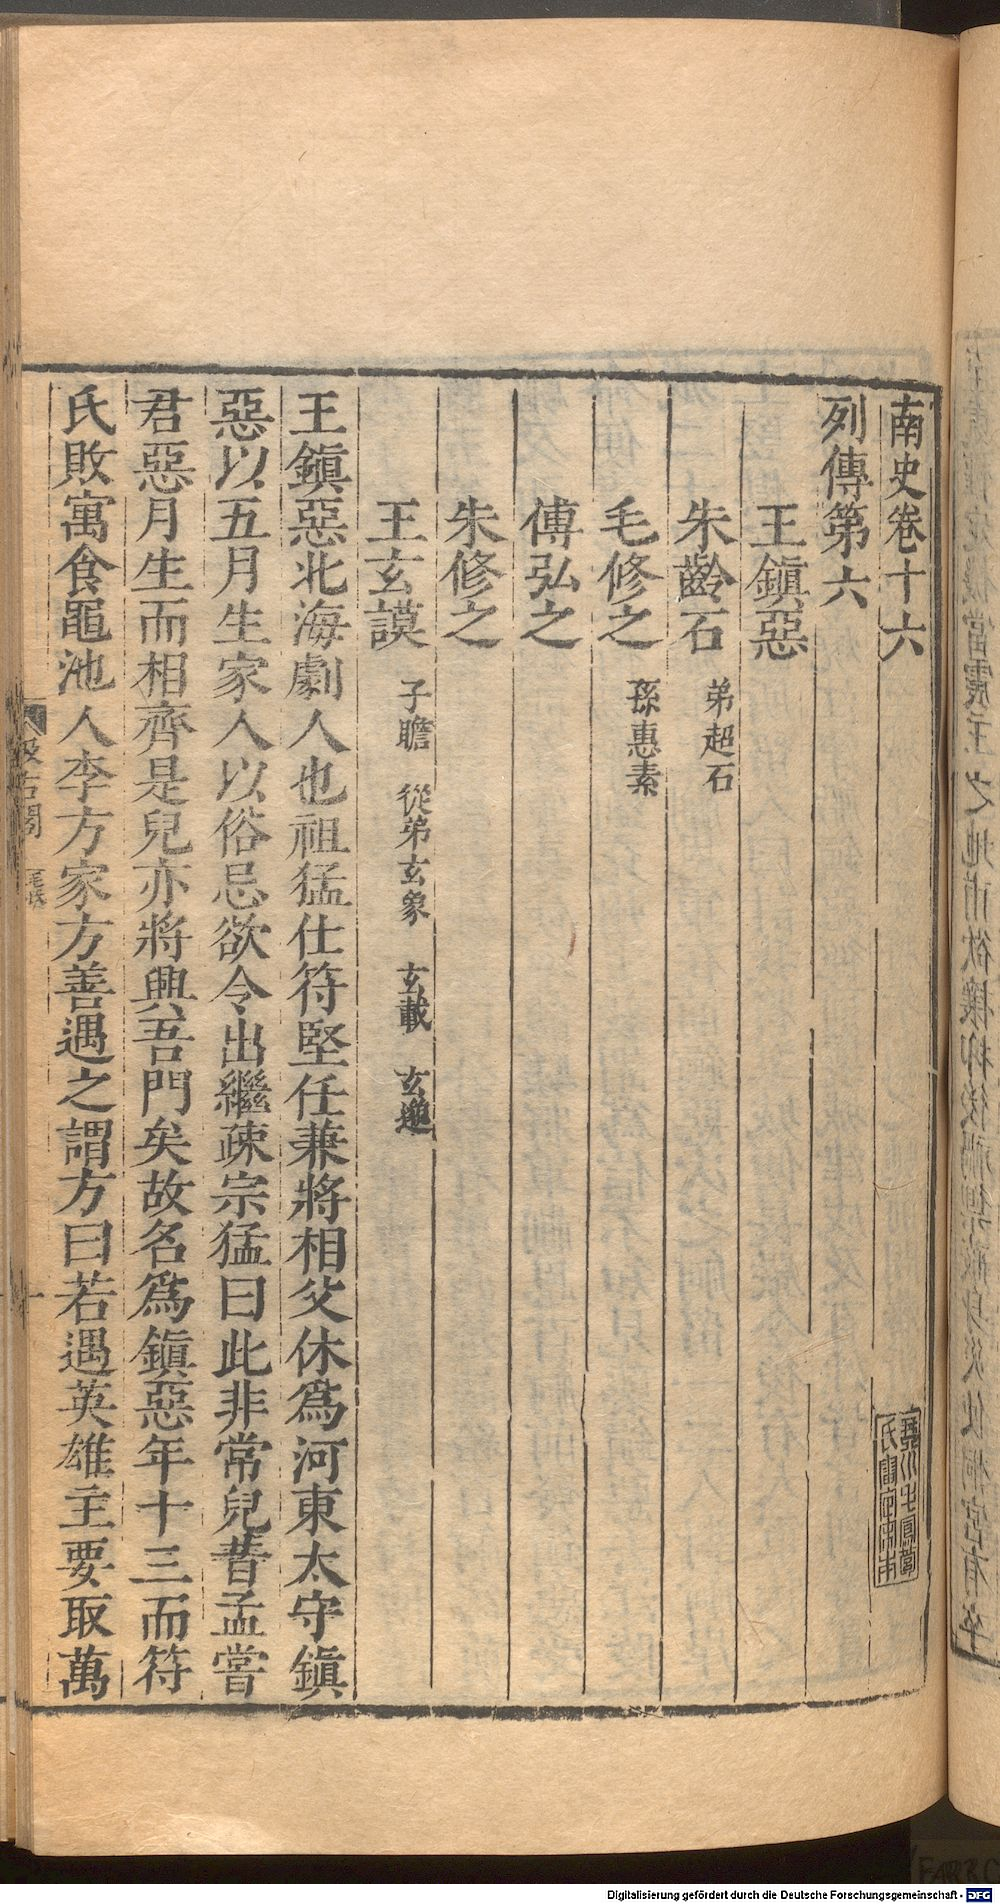 南史卷十六
列傳第六
王鎮惡
朱齡石 弟超石
毛修之 孫惠素
傅弘之
朱修之
王玄謨 子瞻 從弟玄象 玄載 玄邈
王鎮惡北海劇人也祖猛仕符堅任兼將相父休爲河東太守鎮
惡以五月生家人以俗忌欲令出繼疎宗猛曰此非常兒昔孟嘗
君惡月生而相齊是兒亦將興吾門矣故名爲鎮惡年十三而符
氏敗寓食黽池人李方家方善遇之謂方曰若遇英雄主要取萬
汲古閣
毛氏
Digitalisierung gefördert durch die Deutsche Forschungsgemeinschaft - DFG